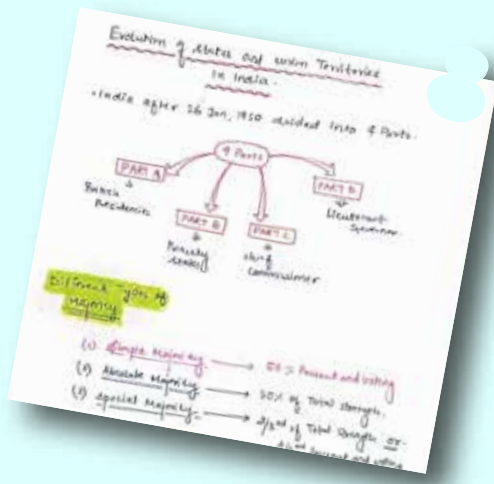 Evolution of states and union Territories
in India.
• India after 26 Jan, 1950 divided into 4 Parts.
4 Parts
PART A
British
Presidencies
PART B
Princely
states
PART C
chief
commissioner
PART D
Lieutenant
Governor
Different Types of
Majority
(1) Simple Majority → 50% Present and voting
(2) Absolute Majority → 50% of Total strength.
(3) Special Majority → 2/3rd of Total Strength or
present and voting